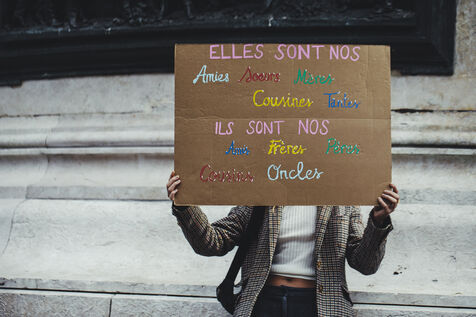 ELLES SONT NOS
Amies Soeurs Mères
Cousines Tantes
ILS SONT NOS
Amis Frères Pères
Cousins Oncles